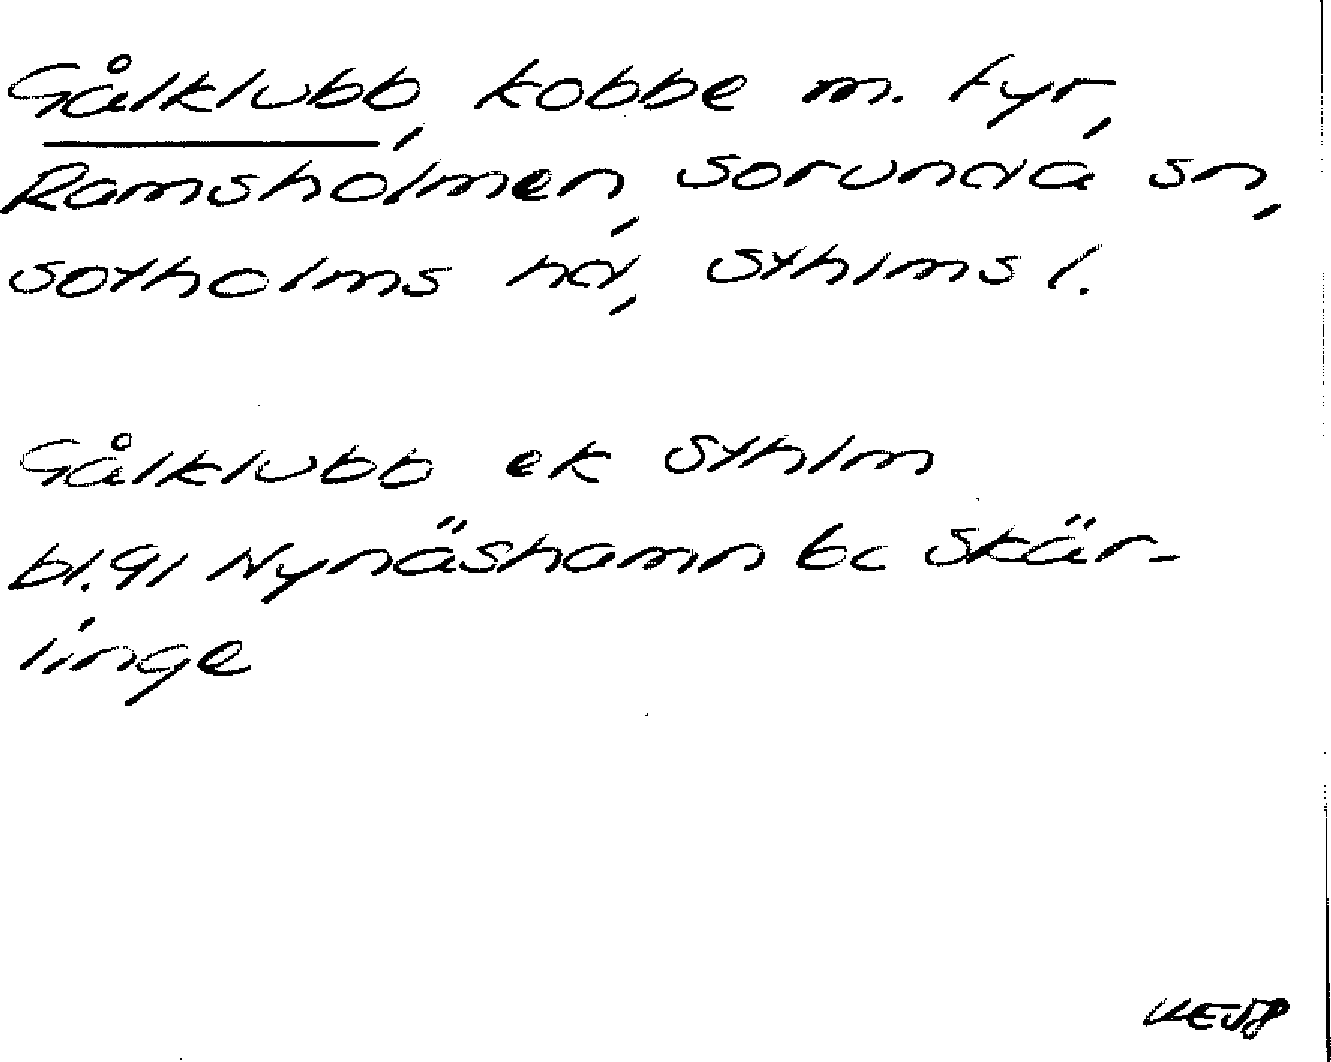 Gålklubb, kobbe m. fyr,
Ramsholmen, Sorunda sn,
Sotholms hd, Sthlms l.
Gålklubb ek Sthlm
bl. 91 Nynäshamn bc Skär-
linge